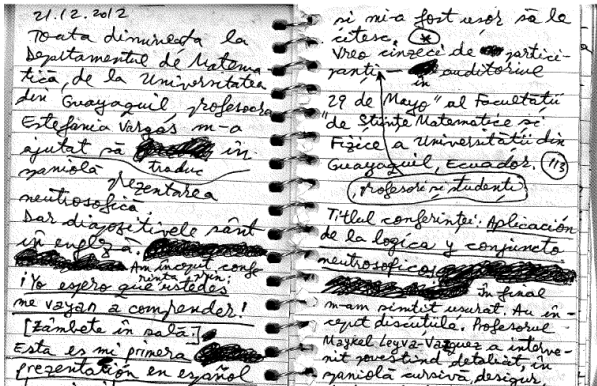 21.12.2012
Toată dimineața la
Departamentul de Matema
tică, de la Universitatea
din Guayaquil profesoara
Estefania Vargas m-a
ajutat să în
traduc
spaniolă
prezentarea
neutrosofică
Dar diapozitivele sânt
în engleză.
Am început confe
rința prin:
¡Yo espero que ustedes
me vayan a comprender!
[zâmbete în sală]
Esta es mi primera
prezentation en español
și mi-a fost ușor să le
citesc. *
Vreo cinzeci de partici-
panți — auditoriul
în
"29 de Mayo" al Facultății
"de Științe Matematice și
Fizice a Universității din
Guayaquil, Ecuador. 113
profesori și studenți
Titlul conferinței: Aplicación
de la logica y conjuncto
neutrosoficos
În final
m-am simțit ușurat. Au în-
ceput discuțiile. Profesorul
Maykel Leyva-Vazquez a interve-
nit povestind detaliat, în
spaniolă cursivă, despre